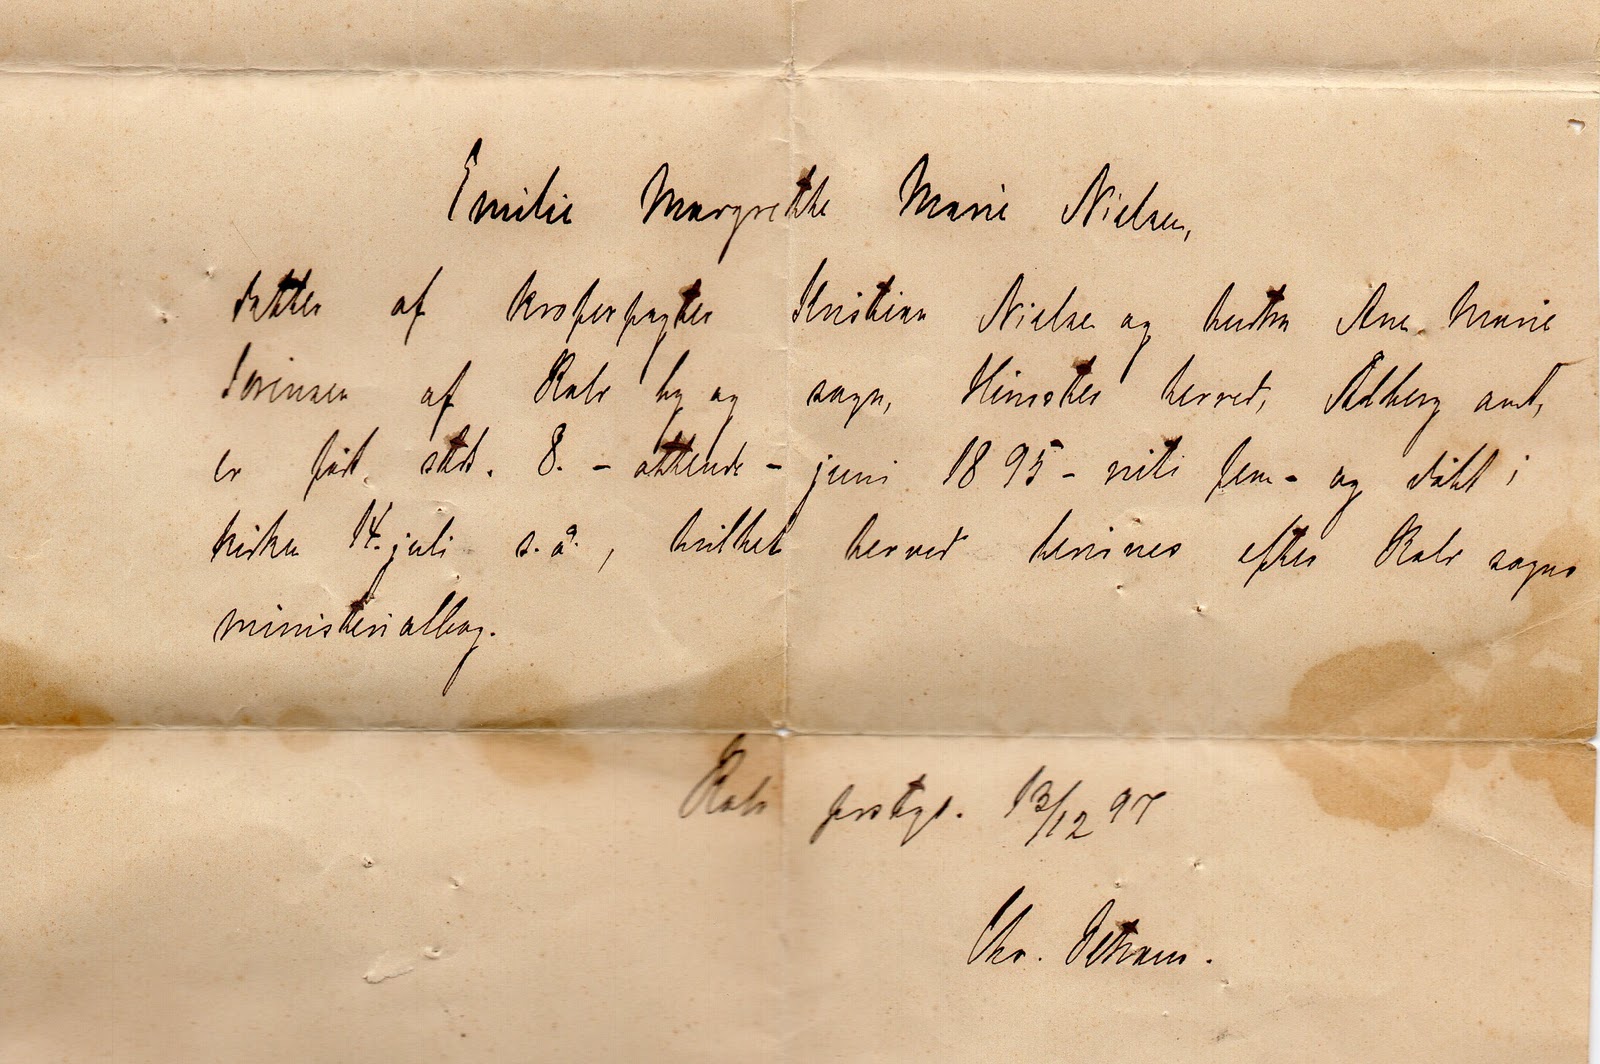 Emilie Margrethe Marie Nielsen,
datter af kroforpagter Kristian Nielsen og hustru Ane Marie
Sørensen af Rold by og sogn, Himsters herred, Ålborg amt,
er født sstds. 8. - ottende - juni 1895 - niti fem - og døbt i
kirken 14. juli s. å., hvilket herved bevisnes efter Rold sogns
ministerialbog.
Rold præstegd. 13/12 97
Chr.